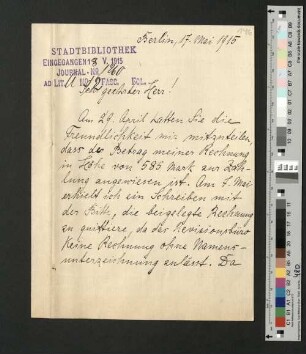 Berlin, 17. Mai 1915
STADTBIBLIOTHEK
EINGEGANGEN 18 V. 1915
JOURNAL-No 1260
AD LIT. No FASC. BCL.
Sehr geehrter Herr!
Am 29. April hatten Sie die
Freundlichkeit mir mitzuteilen,
dass der Betrag meiner Rechnung
in Höhe von 585 Mark zur Zah-
lung angewiesen ist. Am 7. Mai
erhielt ich ein Schreiben mit
der Bitte, die beigelegte Rechnung
zu quittiere, da der Revisionsbüro
keine Rechnung ohne Namens-
unterzeichnung anlässt. Da